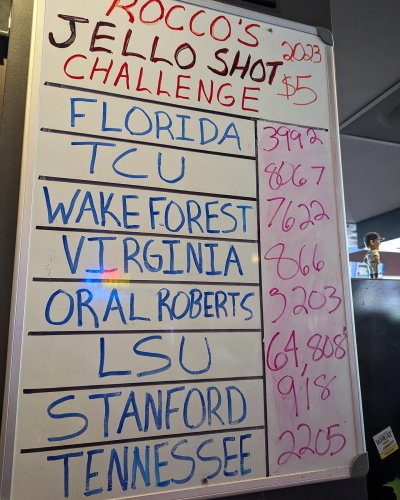 ROCCO'S
JELLO SHOT 2023
CHALLENGE $5
FLORIDA 3992
TCU 8067
WAKE FOREST 7622
VIRGINIA 866
ORAL ROBERTS 3203
LSU 64,808
STANFORD 918
TENNESSEE 2205